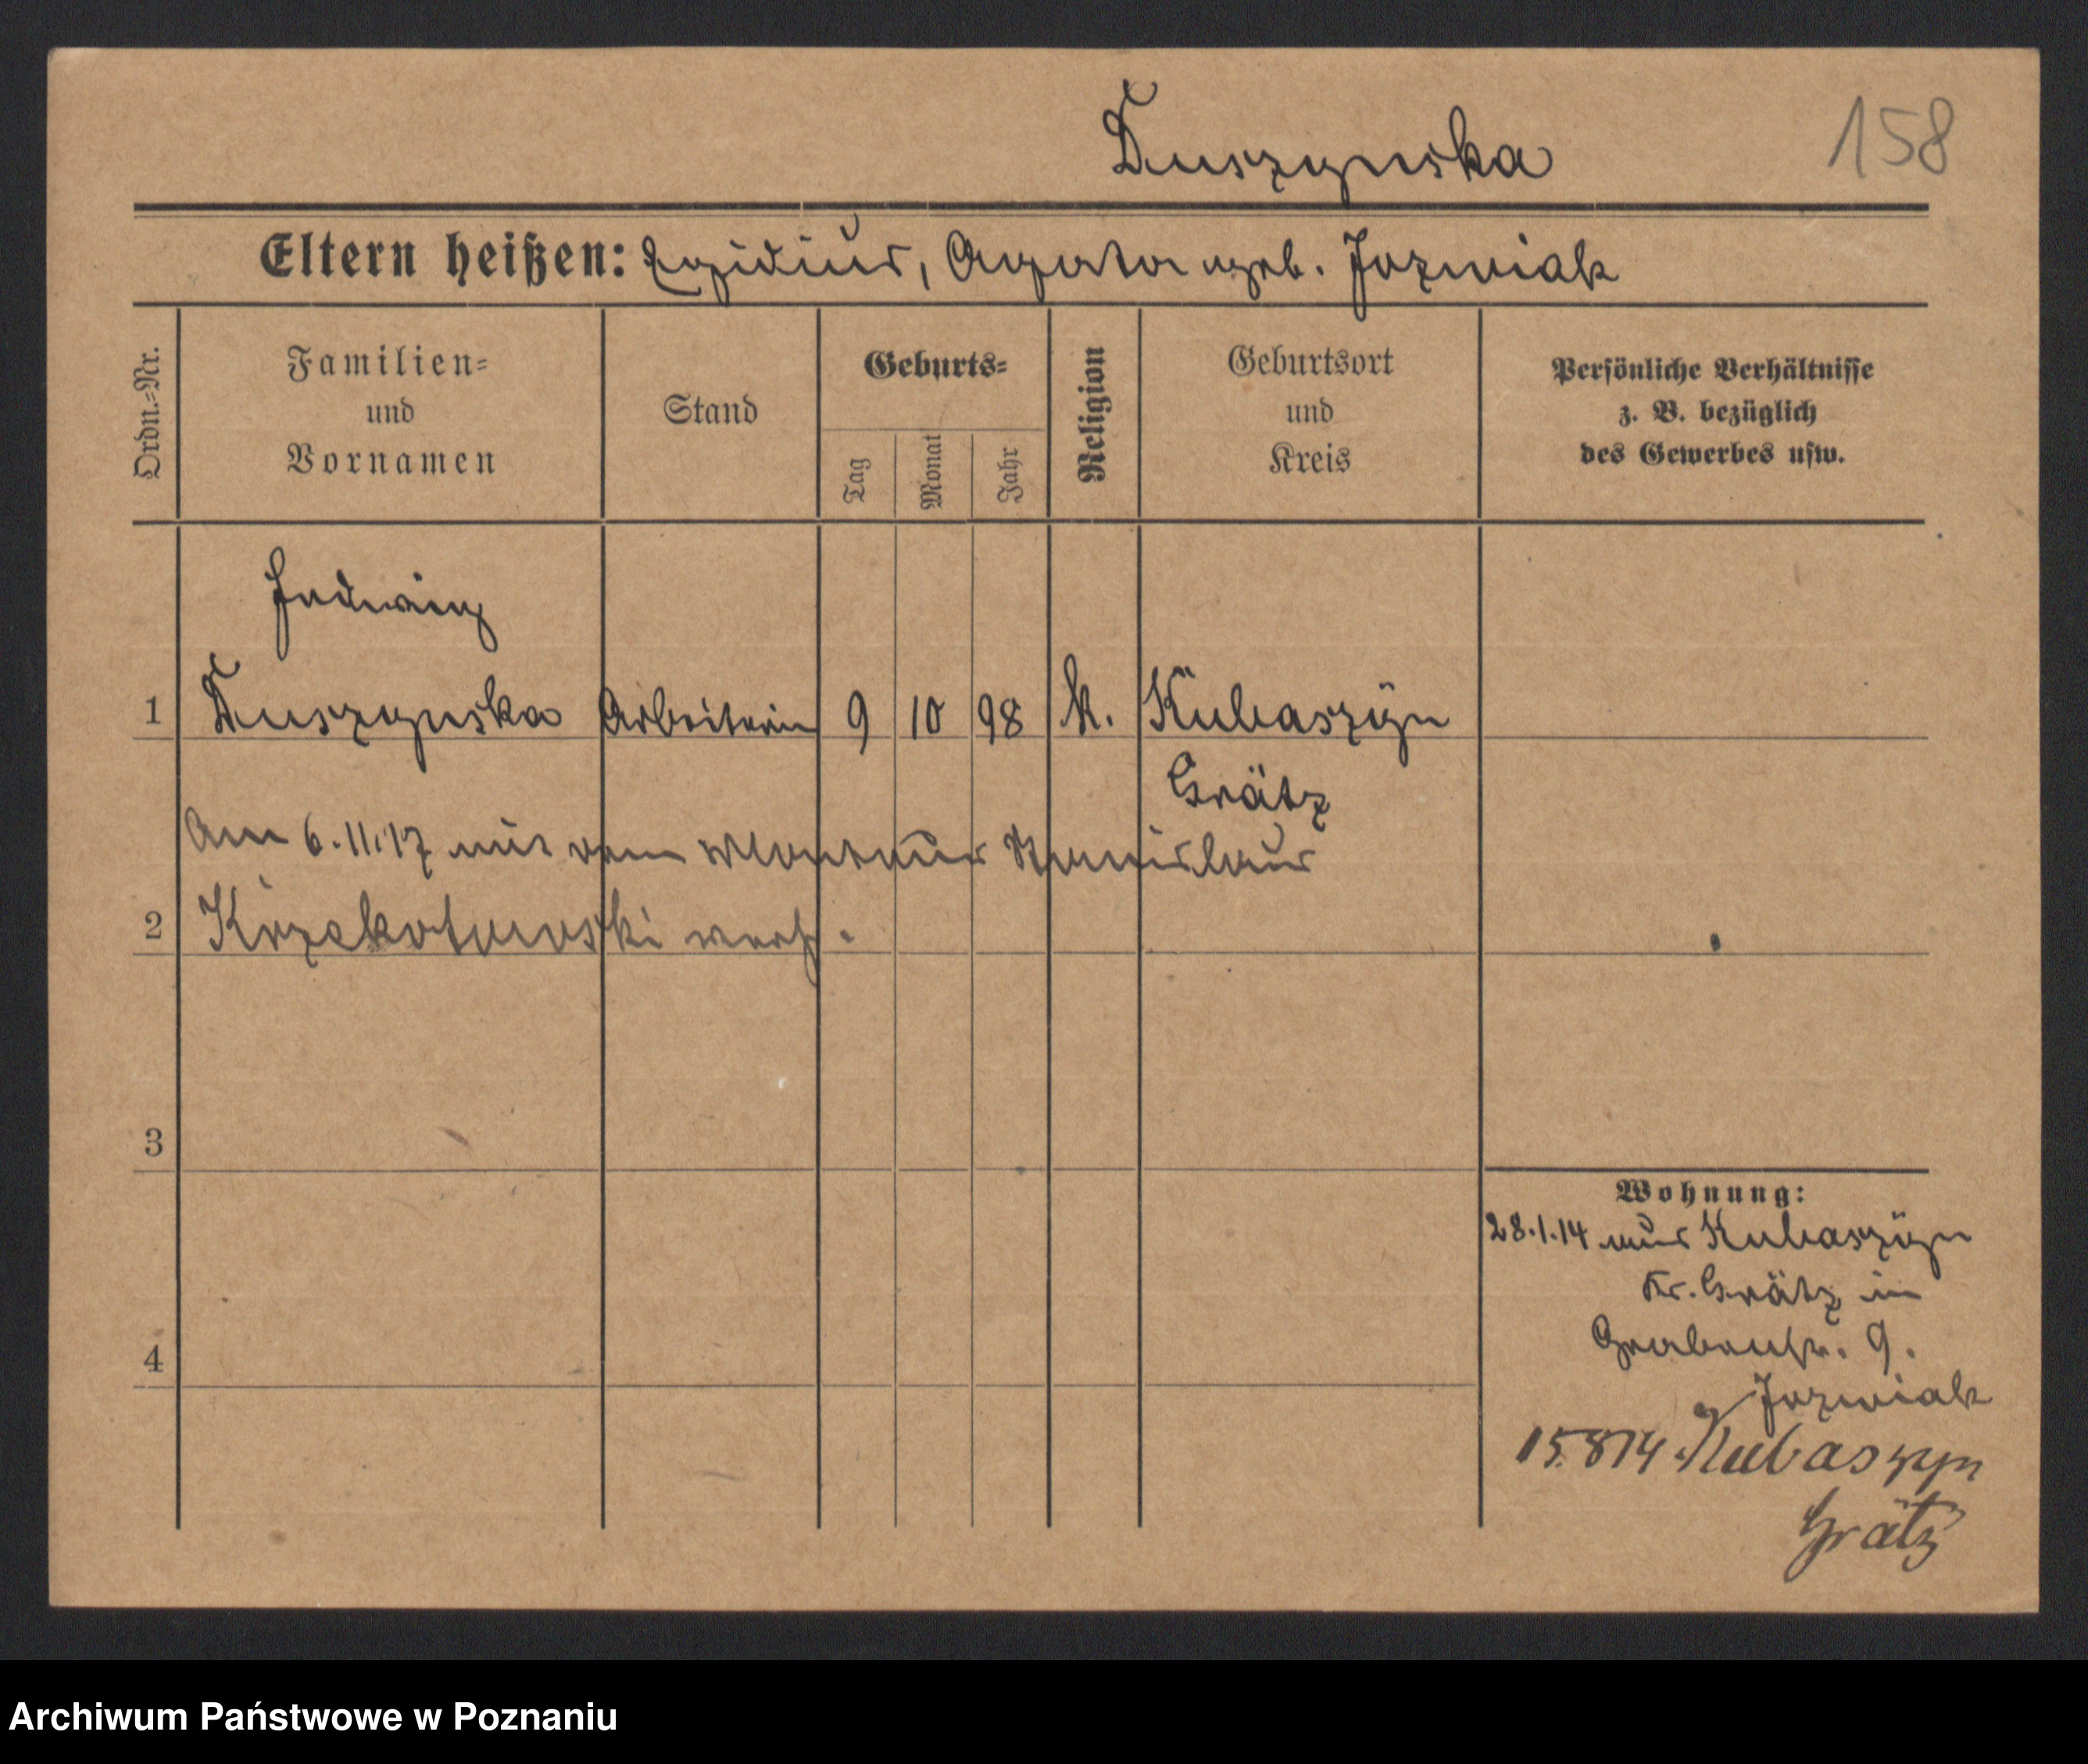 Duszynska
158
Eltern heißen: Egidius, Agata geb. Jozwiak
Ordn.-Nr.
Familien-
und
Vornamen
Stand
Geburts-
Tag
Monat
Jahr
Religion
Geburtsort
und
Kreis
Persönliche Verhältnisse
z. B. bezüglich
des Gewerbes usw.
Hedwig
1 Duszynska Arbeiterin 9 10 98 k. Kubaszyn
Grätz
Am 6.11.17 mit dem Stanislaus
2 verh.
3
4
Wohnung:
28.1.14 aus Kubaszyn
Kr. Grätz in
Grabenstr. 9.
Jozwiak
15.8 14 Kubaszyn
Grätz
Archiwum Państwowe w Poznaniu